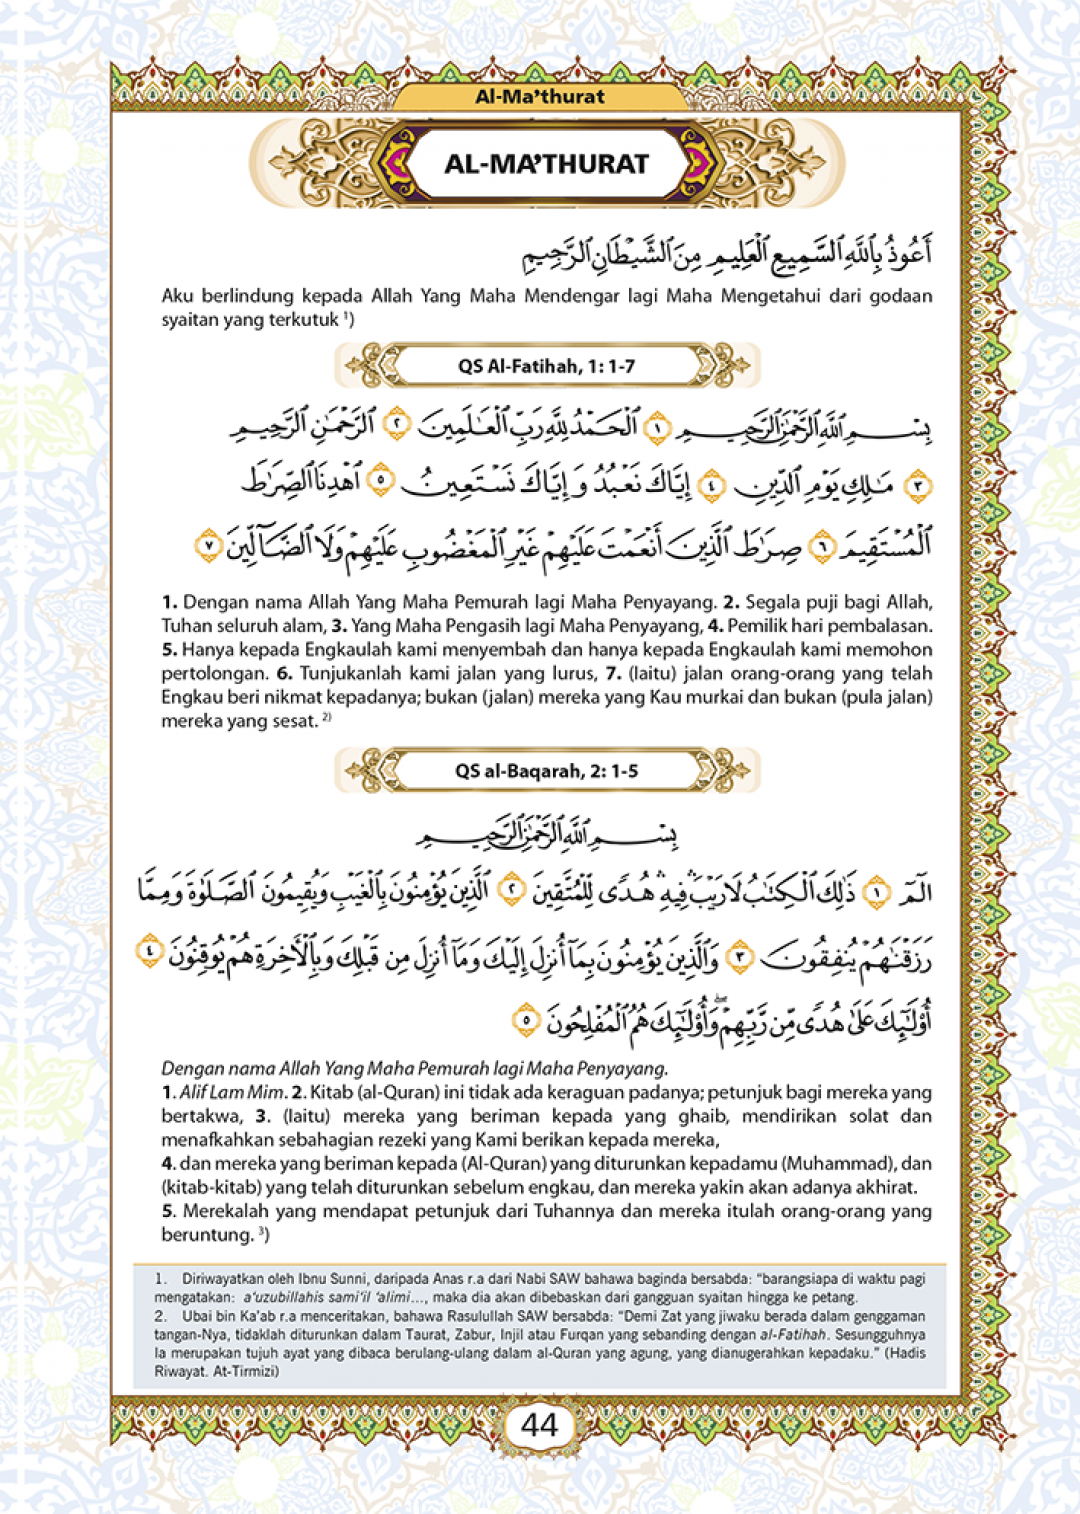 Al-Ma'thurat
AL-MA'THURAT
أَعُوذُ بِاللَّهِ السَّمِيعِ الْعَلِيمِ مِنَ الشَّيْطَانِ الرَّجِيمِ
Aku berlindung kepada Allah Yang Maha Mendengar lagi Maha Mengetahui dari godaan
syaitan yang terkutuk ¹)
QS Al-Fatihah, 1: 1-7
بِسْمِ اللَّهِ الرَّحْمَٰنِ الرَّحِيمِ ١ الْحَمْدُ لِلَّهِ رَبِّ الْعَالَمِينَ ٢ الرَّحْمَٰنِ الرَّحِيمِ
٣ مَالِكِ يَوْمِ الدِّينِ ٤ إِيَّاكَ نَعْبُدُ وَإِيَّاكَ نَسْتَعِينُ ٥ اهْدِنَا الصِّرَاطَ
الْمُسْتَقِيمَ ٦ صِرَاطَ الَّذِينَ أَنْعَمْتَ عَلَيْهِمْ غَيْرِ الْمَغْضُوبِ عَلَيْهِمْ وَلَا الضَّالِّينَ ٧
1. Dengan nama Allah Yang Maha Pemurah lagi Maha Penyayang. 2. Segala puji bagi Allah,
Tuhan seluruh alam, 3. Yang Maha Pengasih lagi Maha Penyayang, 4. Pemilik hari pembalasan.
5. Hanya kepada Engkaulah kami menyembah dan hanya kepada Engkaulah kami memohon
pertolongan. 6. Tunjukanlah kami jalan yang lurus, 7. (Iaitu) jalan orang-orang yang telah
Engkau beri nikmat kepadanya; bukan (jalan) mereka yang Kau murkai dan bukan (pula jalan)
mereka yang sesat. ²⁾
QS al-Baqarah, 2: 1-5
بِسْمِ اللَّهِ الرَّحْمَٰنِ الرَّحِيمِ
الٓمٓ ١ ذَٰلِكَ الْكِتَابُ لَا رَيْبَ ۛ فِيهِ ۛ هُدًى لِّلْمُتَّقِينَ ٢ الَّذِينَ يُؤْمِنُونَ بِالْغَيْبِ وَيُقِيمُونَ الصَّلَوٰةَ وَمِمَّا
رَزَقْنَاهُمْ يُنفِقُونَ ٣ وَالَّذِينَ يُؤْمِنُونَ بِمَا أُنزِلَ إِلَيْكَ وَمَا أُنزِلَ مِن قَبْلِكَ وَبِالْآخِرَةِ هُمْ يُوقِنُونَ ٤
أُوْلَٰٓئِكَ عَلَىٰ هُدًى مِّن رَّبِّهِمْ ۖ وَأُوْلَٰٓئِكَ هُمُ الْمُفْلِحُونَ ٥
Dengan nama Allah Yang Maha Pemurah lagi Maha Penyayang.
1. Alif Lam Mim. 2. Kitab (al-Quran) ini tidak ada keraguan padanya; petunjuk bagi mereka yang
bertakwa, 3. (Iaitu) mereka yang beriman kepada yang ghaib, mendirikan solat dan
menafkahkan sebahagian rezeki yang Kami berikan kepada mereka,
4. dan mereka yang beriman kepada (Al-Quran) yang diturunkan kepadamu (Muhammad), dan
(kitab-kitab) yang telah diturunkan sebelum engkau, dan mereka yakin akan adanya akhirat.
5. Merekalah yang mendapat petunjuk dari Tuhannya dan mereka itulah orang-orang yang
beruntung. ³)
1. Diriwayatkan oleh Ibnu Sunni, daripada Anas r.a dari Nabi SAW bahawa baginda bersabda: "barangsiapa di waktu pagi
mengatakan: a'uzubillahis sami'il 'alimi..., maka dia akan dibebaskan dari gangguan syaitan hingga ke petang.
2. Ubai bin Ka'ab r.a menceritakan, bahawa Rasulullah SAW bersabda: "Demi Zat yang jiwaku berada dalam genggaman
tangan-Nya, tidaklah diturunkan dalam Taurat, Zabur, Injil atau Furqan yang sebanding dengan al-Fatihah. Sesungguhnya
Ia merupakan tujuh ayat yang dibaca berulang-ulang dalam al-Quran yang agung, yang dianugerahkan kepadaku." (Hadis
Riwayat. At-Tirmizi)
44